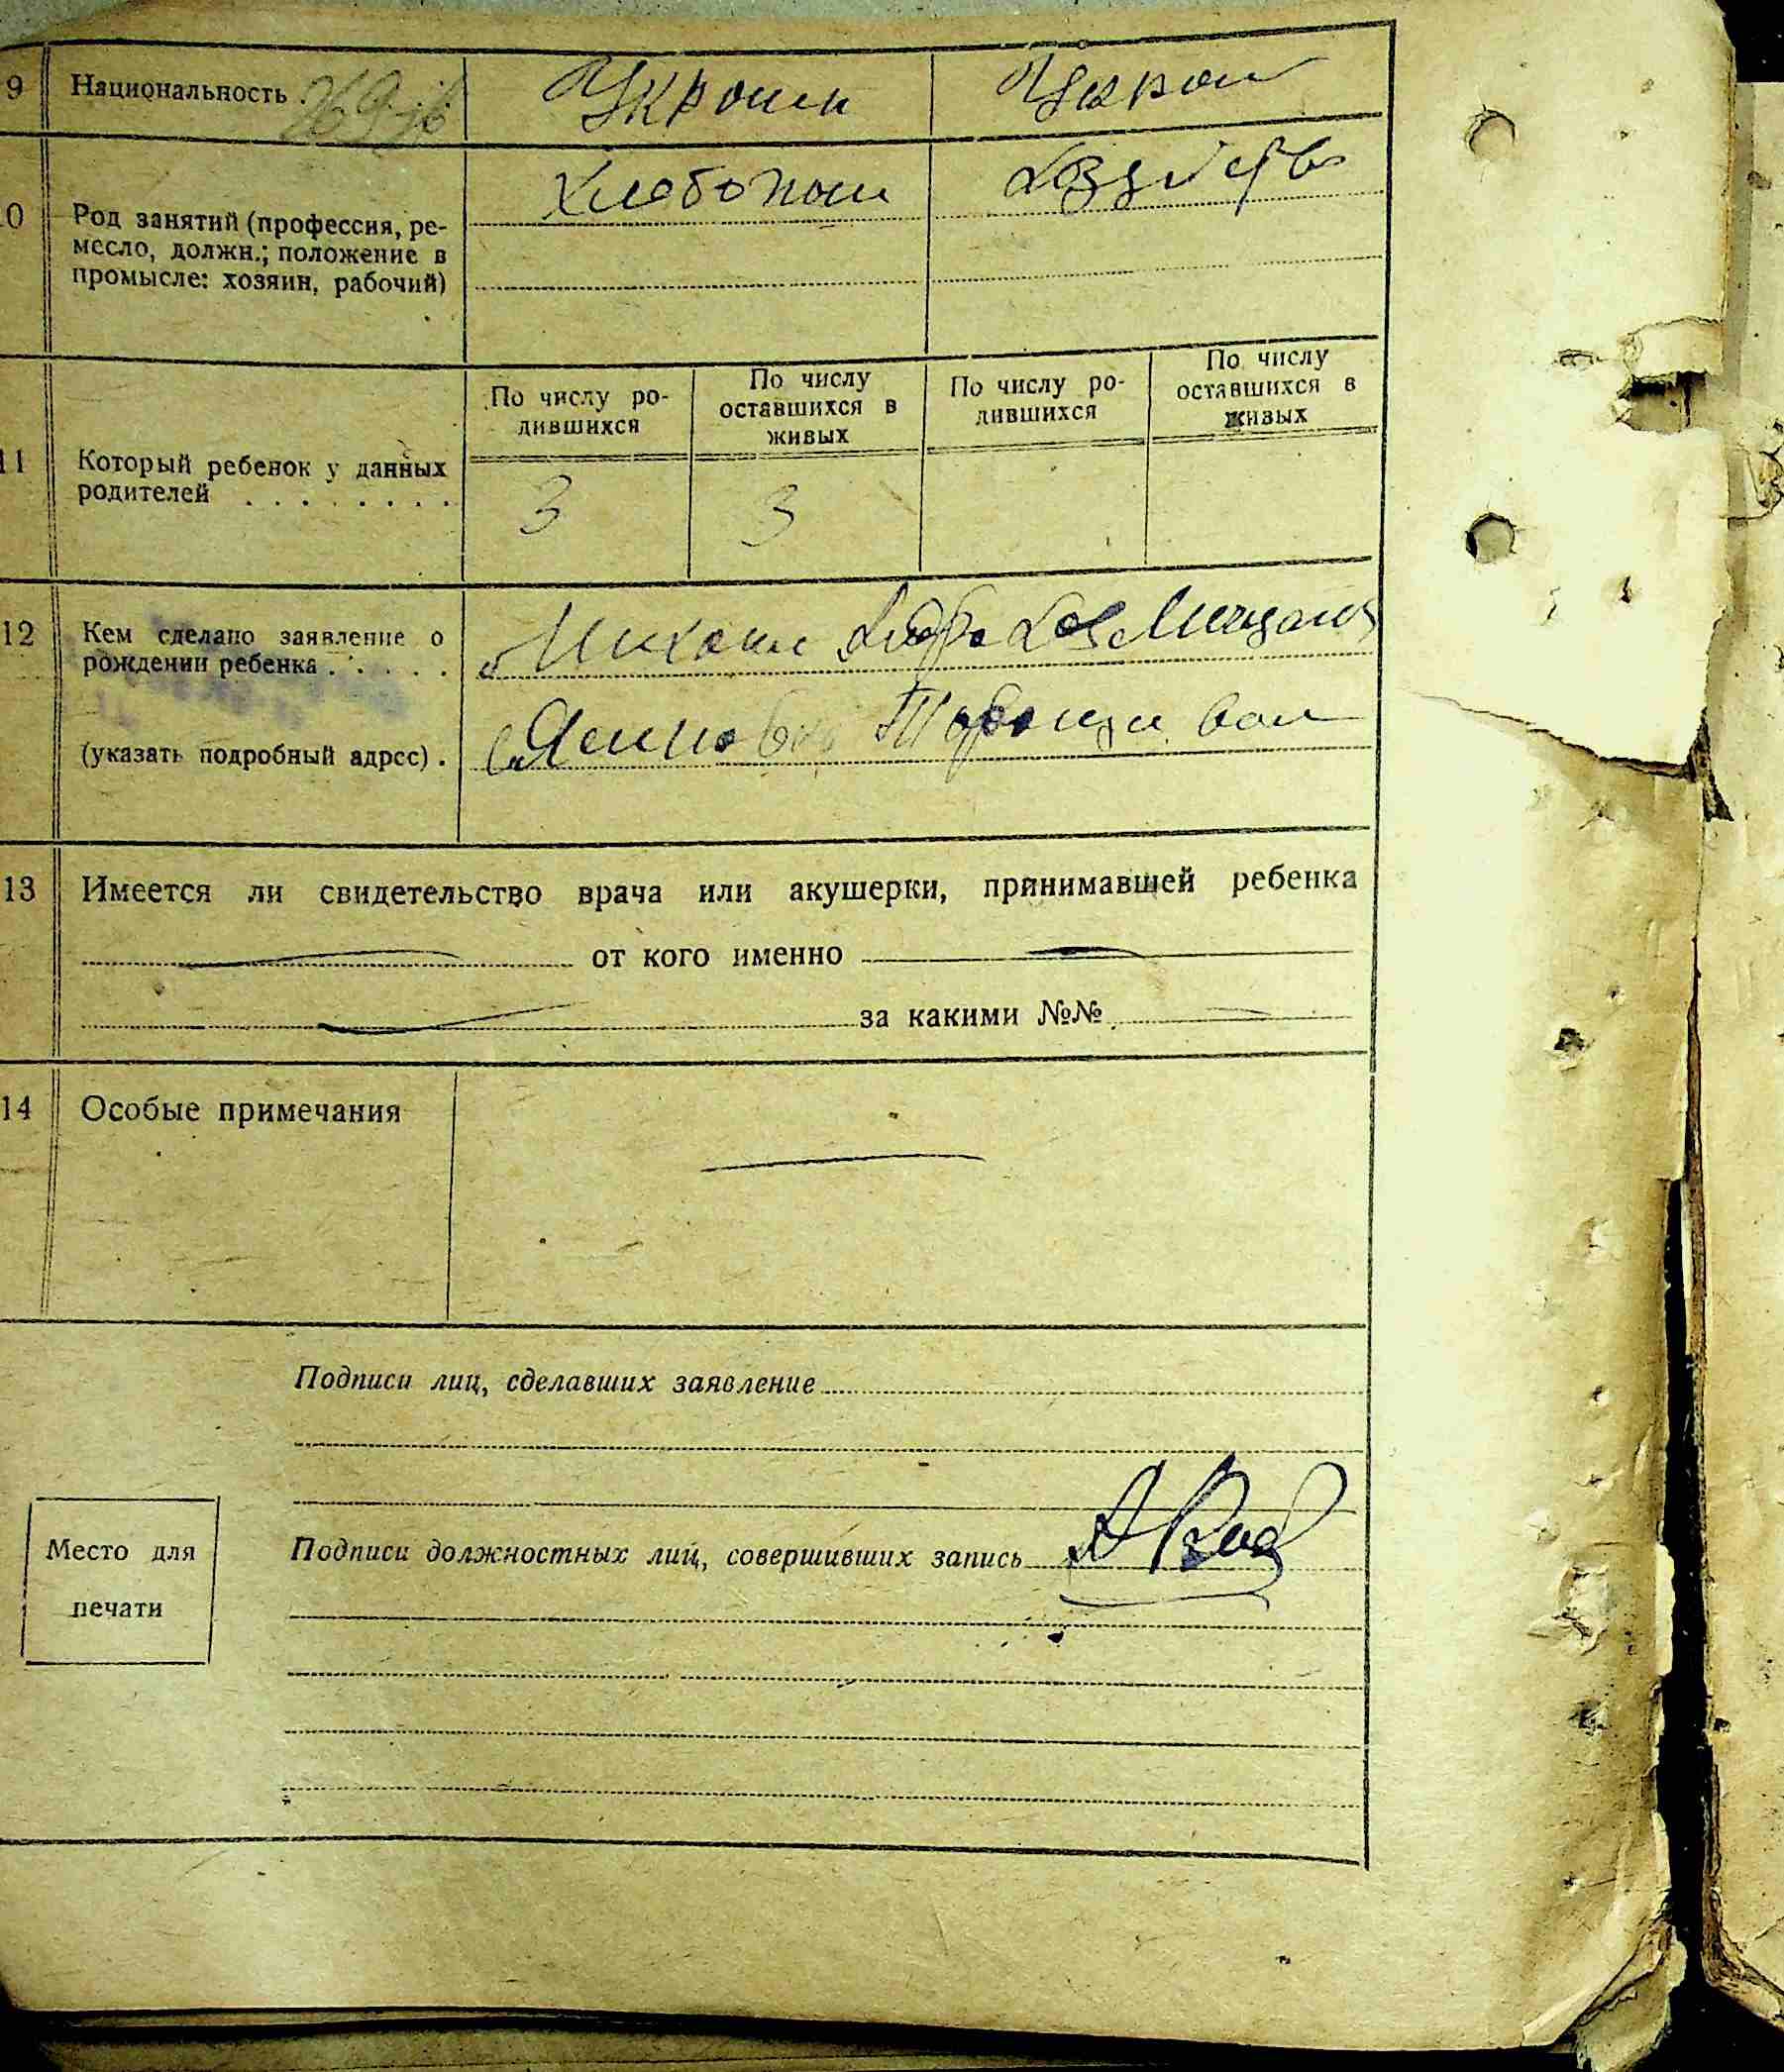 9 Национальность . . . Украин Украи
Хлебопаш
10 Род занятий (профессия, ре-
месло, должн.; положение в
промысле: хозяин, рабочий)
По числу ро-
дившихся
По числу
оставшихся в
живых
По числу ро-
дившихся
По числу
оставшихся в
живых
11 Который ребенок у данных
родителей . . . . . . . . 3 3
12 Кем сделано заявление о
рождении ребенка . . . . . Михаил
(указать подробный адрес) .
13 Имеется ли свидетельство врача или акушерки, принимавшей ребенка
от кого именно
за какими №№
14 Особые примечания
Подписи лиц, сделавших заявление
Место для
печати
Подписи должностных лиц, совершивших запись